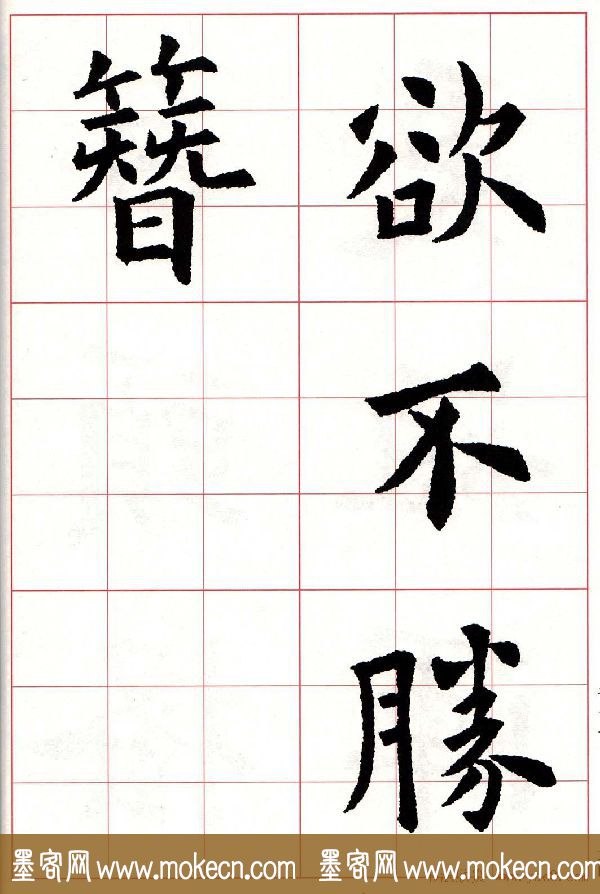 欲不勝
簪
墨客网 www.mokecn.com 墨客网 www.mokecn.com